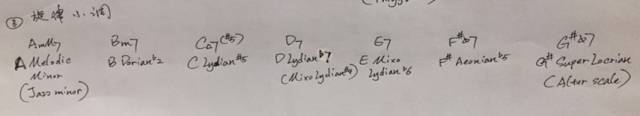 ③ 旋律小调
AmM7 Bm7 C△7(#5) D7 E7 F#ø7 G#ø7
A Melodic B Dorian♭2 C Lydian#5 D Lydian♭7 E Mixo F# Aeonian♭5 G# Super Locrian
Minor (Mixolydian#4) lydian♭6 (Alter scale)
(Jazz minor)